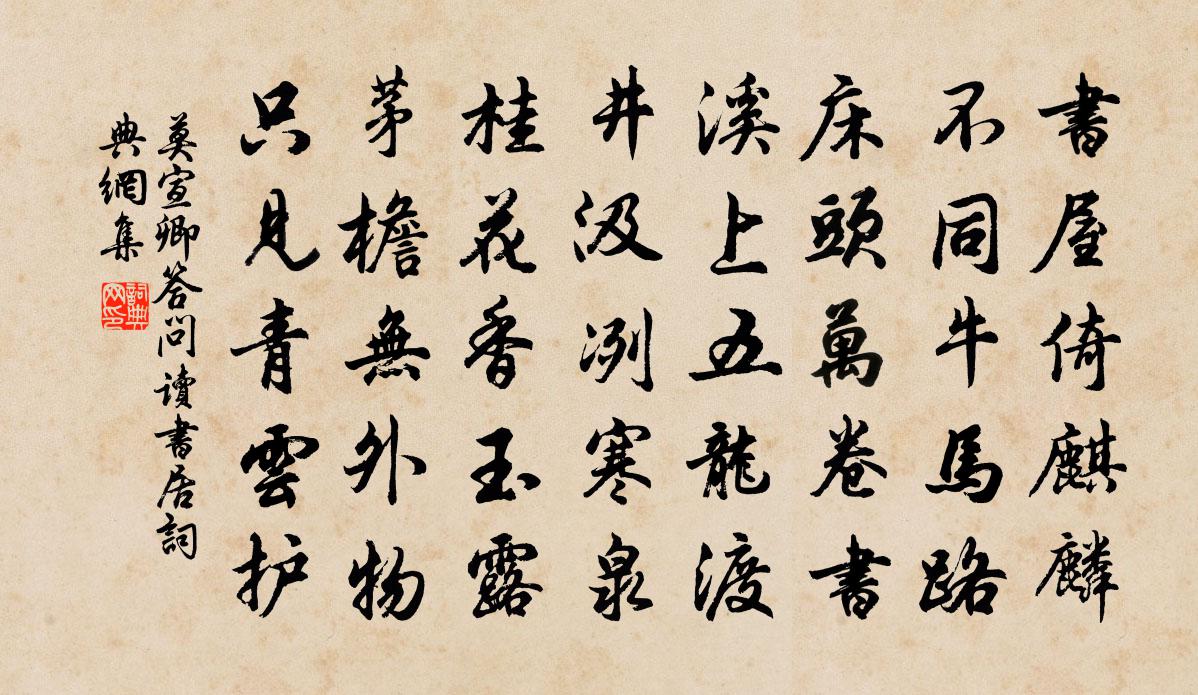 書屋倚麒麟
不同牛馬路
床頭萬卷書
溪上五龍渡
井汲冽寒泉
桂花香玉露
茅檐無外物
只見青雲护
莫宣卿答問讀書居詞
典網集
詞典网印